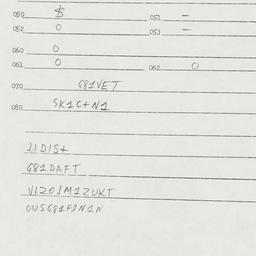 050 $ 051 -
052 0 053 -
060 0
061 0 062 0
070 G81VET
080 SK1C+N1
J1D1S+
G81DAFT
V1ZOJM1ZUKT
OUSG81FJN1N